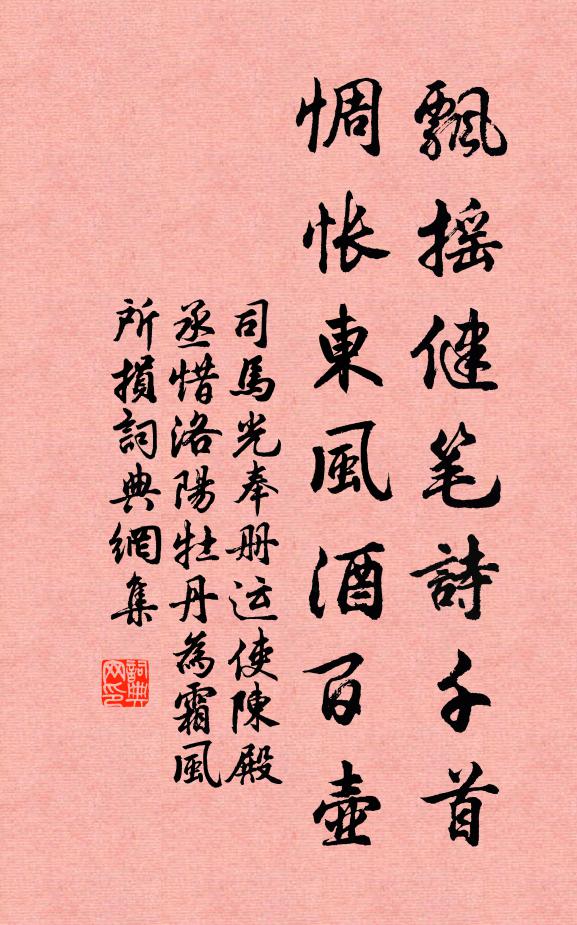 飄摇健笔詩千首
惆怅東風酒百壺
司馬光奉册运使陳殿
丞惜洛陽牡丹為霜風
所損詞典網集
詞典
网印